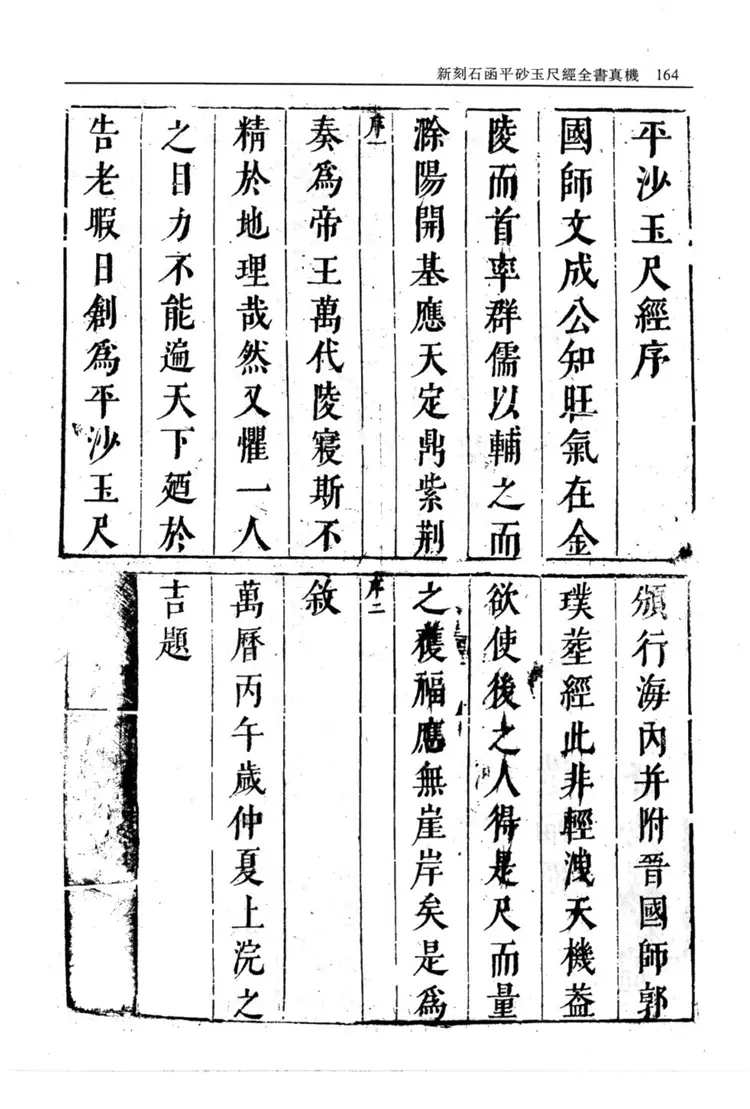 新刻石函平砂玉尺經全書真機 164
平沙玉尺經序
國師文成公知旺氣在金
陵而首率群儒以輔之而
滁陽開基應天定鼎紫荆
序一
奏爲帝王萬代陵寢斯不
精於地理哉然又懼一人
之目力不能遍天下廼於
告老暇日創爲平沙玉尺
頒行海内并附晉國師郭
璞塟經此非輕洩天機葢
欲使後之人得是尺而量
之獲福應無崖岸矣是爲
序二
敘
萬曆丙午歲仲夏上浣之
吉題